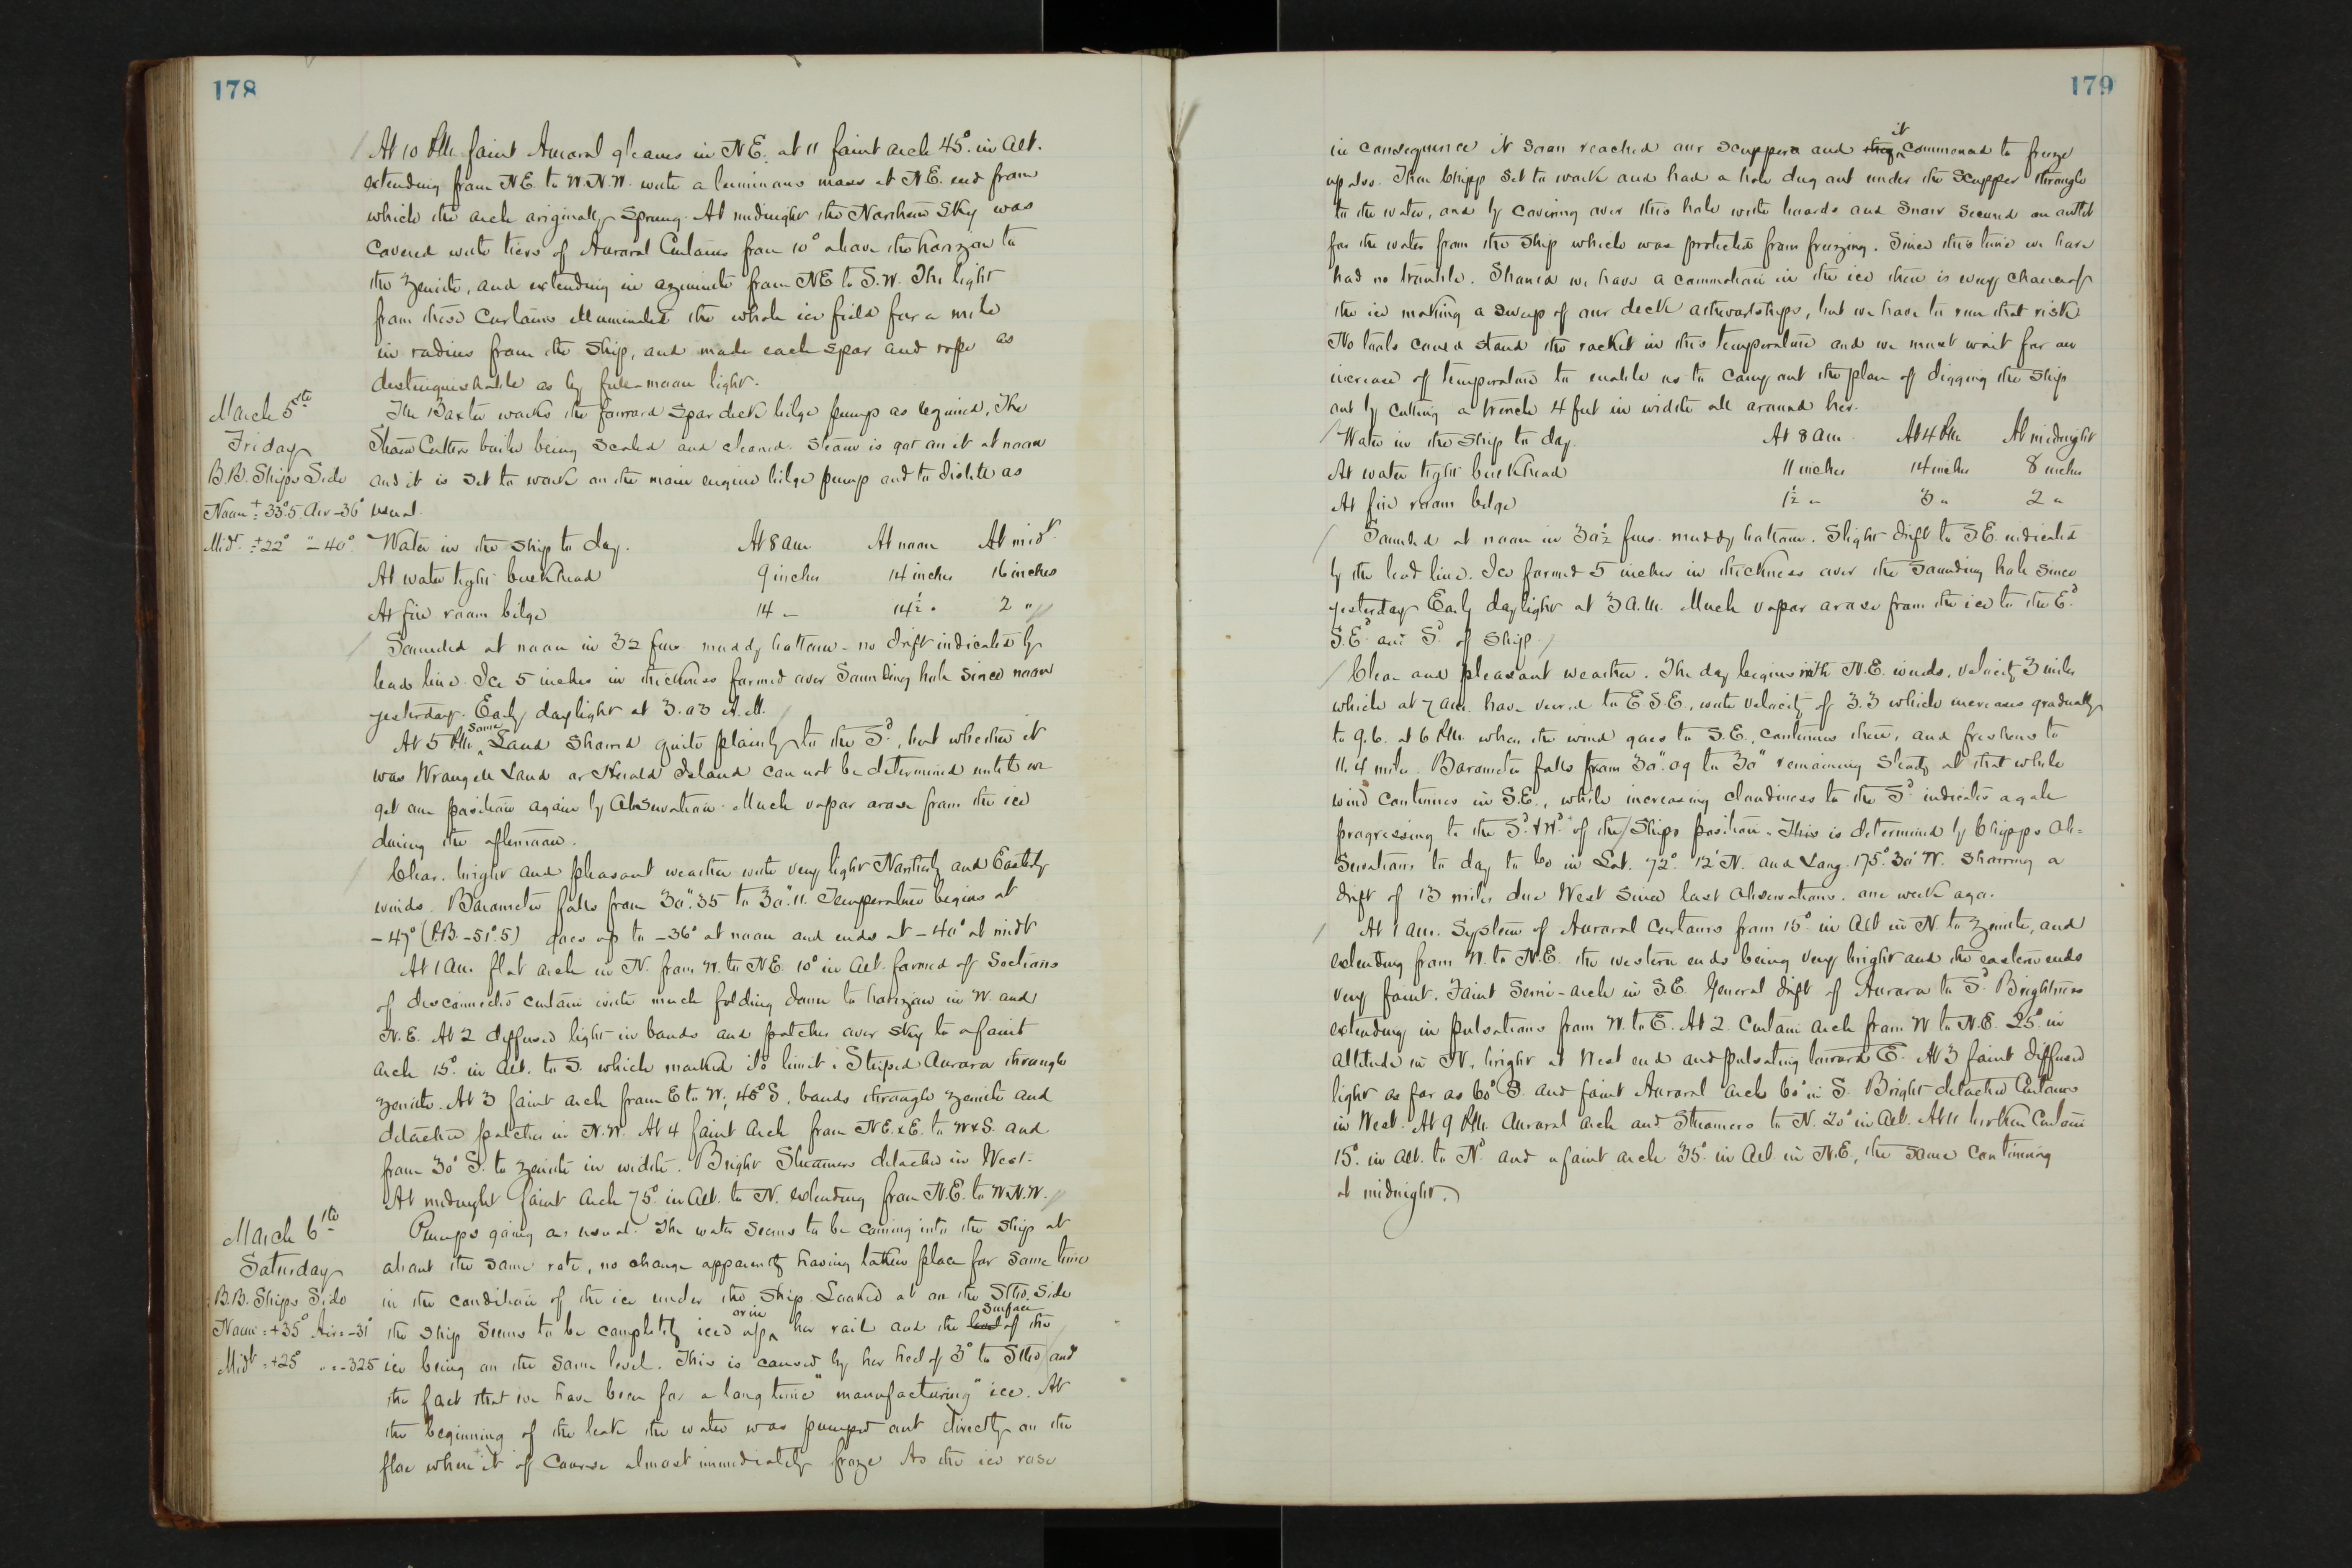 178
At 10 P.M. faint Auroral gleams in N.E. at 11 faint arch 45° in alt.
extending from N.E. to W.N.W. with a luminous mass at N.E. end from
which the arch originally sprung. At midnight the Northern Sky was
covered with tiers of Auroral Curtains from 10° above the horizon to
the zenith, and extending in azimuth from NE to S.W. The light
from these Curtains illuminated the whole ice field for a mile
in radius from the ship, and made each spar and rope as
distinguishable as by full-moon light.
March 5th
Friday
B.B. Ships Side
Noon + 33°.5 Air -36°
Midt. +22° " -40°
The Baxter works the forward spar deck bilge pump as required, The
Steam Cutters boiler being scaled and cleaned. Steam is got on it at noon
and it is set to work on the main engine bilge pump and to distill as
usual.
Water in the ship to day. At 8 am. At noon At midt.
At water tight bulkhead 9 inches 14 inches 16 inches
At fire room bilge 14 " 14½ " 2 "
Sounded at noon in 32 fms. muddy bottom - no drift indicated by
lead line. Ice 5 inches in thickness formed over Sounding hole since noon
yesterday. Early daylight at 3.03 A.M.
At 5 P.M. some Land showed quite plainly to the S'd, but whether it
was Wrangell Land or Herald Island can not be determined until we
get our position again by Observation. Much vapor arose from the ice
during the afternoon.
Clear, bright and pleasant weather with very light Northerly and Easterly
winds. Barometer falls from 30".35 to 30".11. Temperature begins at
-47° (P.B. -51°.5) goes up to -36° at noon and ends at -40° at midt
At 1 am. flat arch in N. from W. to NE. 10° in alt. formed of Sections
of disconnected curtain with much folding down to horizon in W. and
N.E. At 2 diffused light in bands and patches over sky to a faint
arch 15° in alt. to S. which marked its limit. Striped Aurora through
zenith. At 3 faint arch from E to W, 45° S, bands through zenith and
detached patches in N.W. At 4 faint Arch from NE.xE. to WxS. and
from 30° S. to zenith in width. Bright Streamers detached in West.
At midnight faint arch 75° in alt. to N. extending from N.E. to W.N.W.
March 6th
Saturday
B.B. Ships Side
Noon = +35° Air = -31°
Midt = +25° " = -32.5
Pumps going as usual. The water seems to be coming into the ship at
about the same rate, no change apparently having taken place for some time
in the condition of the ice under the ship. Looked at on the Stbd. side
the ship seems to be completely iced up or in her rail and the level surface of the
ice being on the same level. This is caused by her heel of 3° to Stbd and
the fact that we have been for a long time "manufacturing" ice. At
the beginning of the leak the water was pumped out directly on the
floe where it of course almost immediately froze As the ice rose
179
in consequence it soon reached our scuppers and they it commenced to freeze
up also. Then Chipp set to work and had a hole dug out under the Scupper through
to the water, and by covering over this hole with boards and snow secured an outlet
for the water from the ship which was protected from freezing. Since this time we have
had no trouble. Should we have a commotion in the ice there is every chance of
the ice making a sweep of our deck athwartships, but we have to run that risk.
No tools could stand the racket in this temperature and we must wait for an
increase of temperature to enable us to carry out the plan of digging the ship
out by cutting a trench 4 feet in width all around her.
Water in the ship to day. At 8 am. At 4 P.M. At midnight
At water tight bulkhead 11 inches 14 inches 8 inches
At fire room bilge 1½ " 3 " 2 "
Sounded at noon in 30½ fms. muddy bottom. Slight drift to S.E. indicated
by the lead line. Ice formed 5 inches in thickness over the Sounding hole since
yesterday. Early daylight at 3 A.M. Much vapor arose from the ice to the E'd
S.E'd and S'd of ship.
Clear and pleasant weather. The day begins with N.E. winds, velocity 3 miles
which at 7 am. have veered to E S.E., with velocity of 3.3 which increases gradually
to 9.6. at 6 P.M. when the wind goes to S.E., continues there, and freshens to
11.4 miles. Barometer falls from 30".09 to 30" remaining steady at that while
wind continues in S.E., while increasing cloudiness to the S'd indicates a gale
progressing to the S'd & W'd of the Ships position. This is determined by Chipps Ob-
servations to day to be in Lat. 72° 12' N. and Long. 175° 30' W. showing a
drift of 13 miles due West since last Observations. one week ago.
At 1 am. System of Auroral Curtains from 15° in Alt in N. to zenith, and
extending from W. to N.E. the western ends being very bright and the eastern ends
very faint. Faint Semi-arch in S.E. General drift of Aurora to S'd Brightness
extending in pulsations from W. to E. At 2 Curtain arch from W to N.E. 25° in
altitude in N, bright at West end and pulsating toward E. At 3 faint diffused
light as far as 60° S. and faint Auroral arch 60° in S. Bright detached Curtains
in West. At 9 P.M. Auroral Arch and Streamers to N. 20° in Alt. At 11 broken Curtain
15° in alt. to N'd and a faint arch 35° in Alt. in N.E., the same continuing
at midnight.